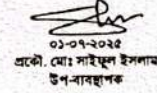 ০১-০৭-২০২৫
প্রকৌ. মোঃ সাইফুল ইসলাম
উপ-ব্যবস্থাপক